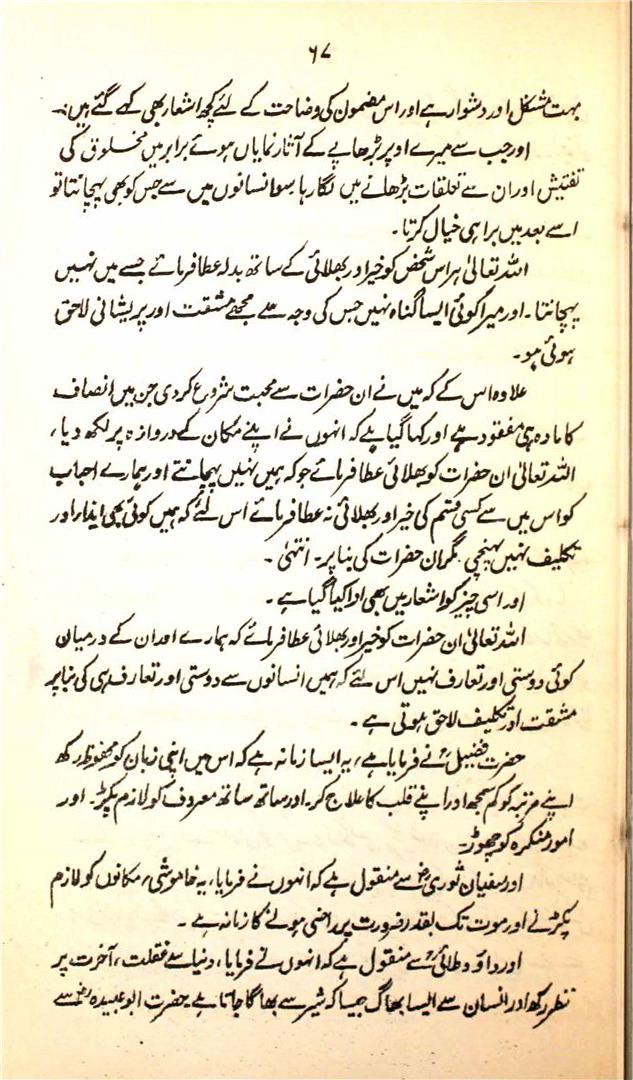 ۶۷
بہت مشکل اور دشوار ہے اور اس مضمون کی وضاحت کے لئے کچھ اشعار بھی کہے گئے ہیں :۔
اور جب سے میرے اوپر بڑھاپے کے آثار نمایاں ہوئے برابر میں مخلوق کی
تفتیش اور ان سے تعلقات بڑھانے میں لگا رہا سو انسانوں میں سے جس کو بھی پہچانتا تو
اسے بعد میں برا ہی خیال کرتا ۔
اللہ تعالیٰ ہر اس شخص کو خیر اور بھلائی کے ساتھ بدلہ عطا فرمائے جسے میں نہیں
پہچانتا ۔ اور میرا کوئی ایسا گناہ نہیں جس کی وجہ سے مجھے مشقت اور پریشانی لاحق
ہوئی ہو ۔
علاوہ اس کے کہ میں نے ان حضرات سے محبت شروع کر دی جن میں انصاف
کا مادہ ہی مفقود ہے اور کہا گیا ہے کہ انہوں نے اپنے مکان کے دروازہ پر لکھ دیا ،
اللہ تعالیٰ ان حضرات کو بھلائی عطا فرمائے جو کہ ہمیں نہیں پہچانتے اور ہمارے احباب
کو اس میں سے کسی قسم کی خیر اور بھلائی نہ عطا فرمائے اس لئے کہ ہمیں کوئی بھی ایذا اور
تکلیف نہیں پہنچی مگر ان حضرات کی بنا پر ۔ انتہیٰ ۔
اور اسی چیز کو اشعار میں بھی ادا کیا گیا ہے ۔
اللہ تعالیٰ ان حضرات کو خیر اور بھلائی عطا فرمائے کہ ہمارے اور ان کے درمیان
کوئی دوستی اور تعارف نہیں اس لئے کہ ہمیں انسانوں سے دوستی اور تعارف ہی کی بنا پر
مشقت اور تکلیف لاحق ہوتی ہے ۔
حضرت فضیلؒ نے فرمایا ہے ، یہ ایسا زمانہ ہے کہ اس میں اپنی زبان کو محفوظ رکھ
اپنے مرتبہ کو کم سمجھ اور اپنے قلب کا علاج کر ۔ اور ساتھ ساتھ معروف کو لازم پکڑ ۔ اور
امور منکرہ کو چھوڑ ۔
اور سفیان ثوریؒ سے منقول ہے کہ انہوں نے فرمایا ، یہ خاموشی ، مکانوں کو لازم
پکڑنے اور موت تک بقدر ضرورت پر راضی ہونے کا زمانہ ہے ۔
اور داؤد طائیؒ سے منقول ہے کہ انہوں نے فرمایا ، دنیا سے غفلت ، آخرت پر
نظر رکھ اور انسان سے ایسا بھاگ جیسا کہ شیر سے بھاگا جاتا ہے ۔ حضرت ابو عبیدہؒ سے